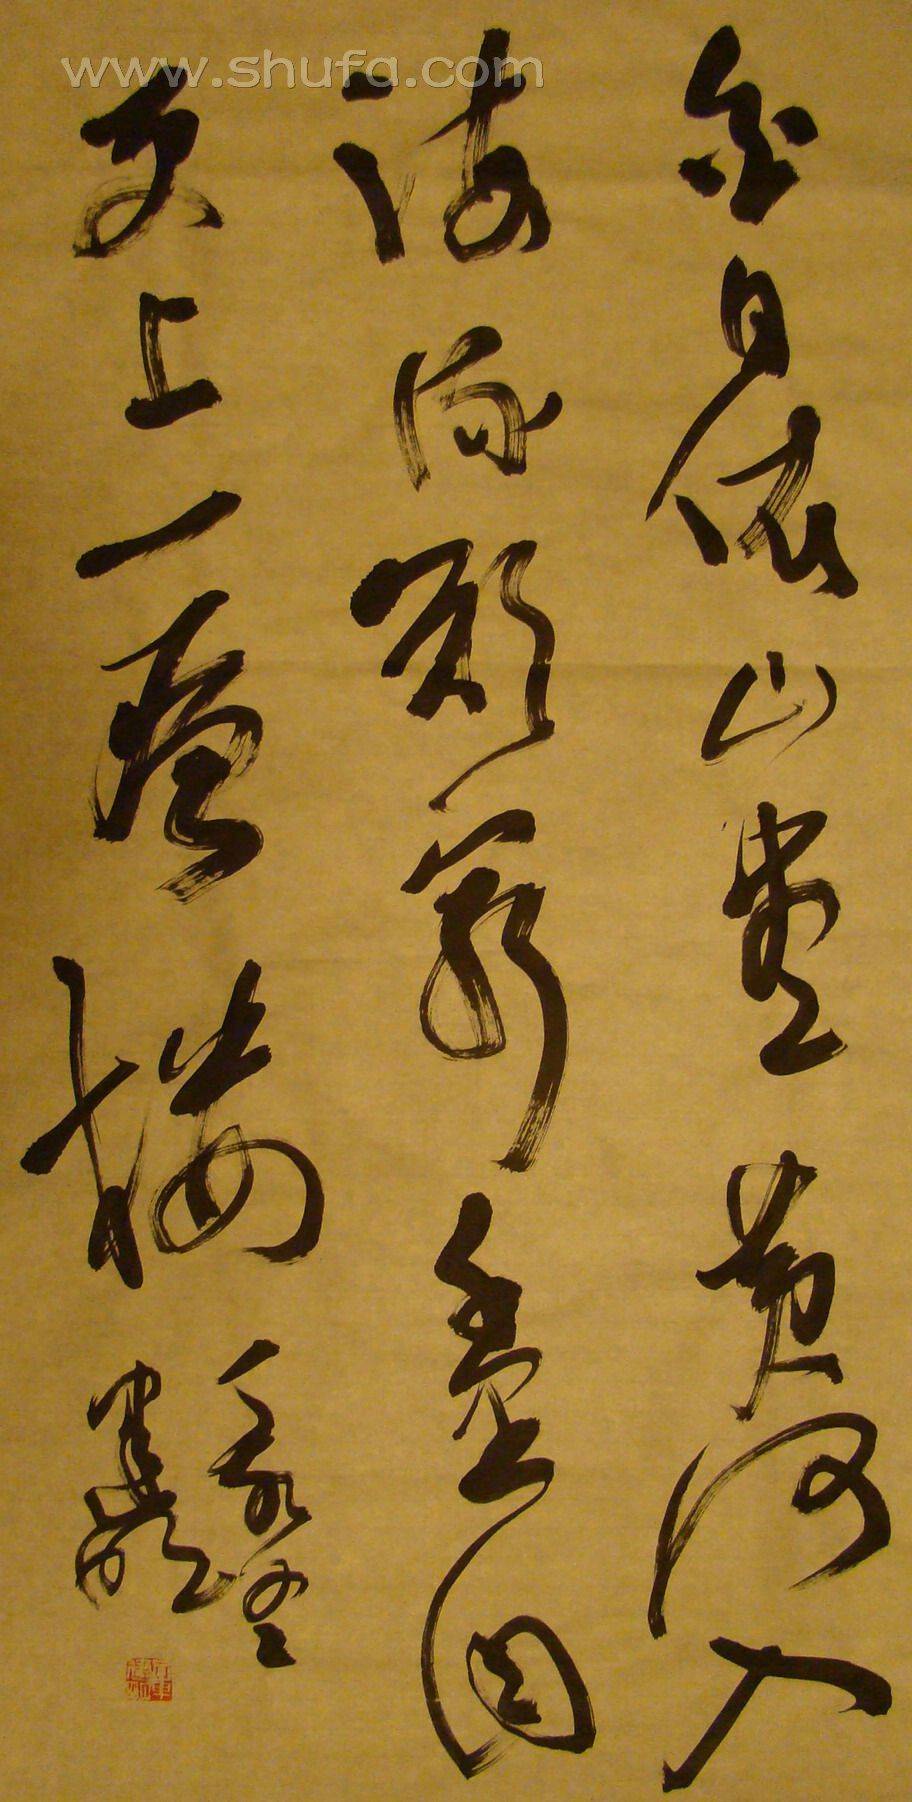 白日依山尽黄河入
海流欲穷尽目
更上一层楼
www.shufa.com